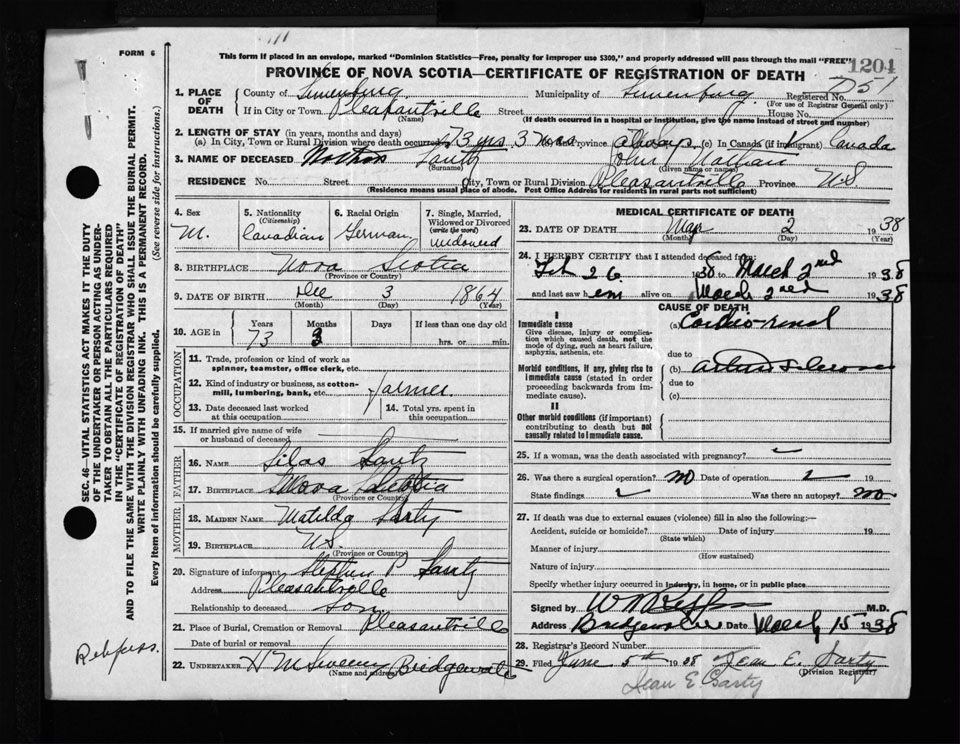 FORM 6
This form if placed in an envelope, marked "Dominion Statistics—Free, penalty for improper use $300," and properly addressed will pass through the mail "FREE"
1204
PROVINCE OF NOVA SCOTIA—CERTIFICATE OF REGISTRATION OF DEATH
D51
1. PLACE OF DEATH
County of Lunenburg Municipality of Lunenburg Registered No.
(For use of Registrar General only)
If in City or Town Pleasantville Street House No.
(Name) (If death occurred in a hospital or institution, give the name instead of street and number)
2. LENGTH OF STAY (in years, months and days)
(a) In City, Town or Rural Division where death occurred 73 yrs 3 mos Province always (c) In Canada (if immigrant) Canada
3. NAME OF DECEASED Sarty John Nathan
(Surname) (Given name or names)
RESIDENCE No. Street City, Town or Rural Division Pleasantville Province N.S
(Residence means usual place of abode. Post Office Address for residents in rural parts not sufficient)
4. Sex
M.
5. Nationality
(Citizenship)
Canadian
6. Racial Origin
German
7. Single, Married, Widowed or Divorced
(write the word)
widowed
8. BIRTHPLACE Nova Scotia
(Province or Country)
9. DATE OF BIRTH Dec 3 1864
(Month) (Day) (Year)
10. AGE in Years Months Days If less than one day old
73 3 hrs. or min.
OCCUPATION
11. Trade, profession or kind of work as spinner, teamster, office clerk, etc.
12. Kind of industry or business, as cotton-mill, lumbering, bank, etc. farmer
13. Date deceased last worked at this occupation
14. Total yrs. spent in this occupation
15. If married give name of wife or husband of deceased
FATHER
16. NAME Silas Sarty
17. BIRTHPLACE Nova Scotia
(Province or Country)
MOTHER
18. MAIDEN NAME Matilda Sarty
19. BIRTHPLACE N.S.
(Province or Country)
20. Signature of informant Stephen P Sarty
Address Pleasantville
Relationship to deceased Son
21. Place of Burial, Cremation or Removal Pleasantville
Date of burial or removal
22. UNDERTAKER H M Sweeny Bridgewater
(Name and address)
MEDICAL CERTIFICATE OF DEATH
23. DATE OF DEATH Mar 2 1938
(Month) (Day) (Year)
24. I HEREBY CERTIFY that I attended deceased from:
Feb 26 1938 to March 2nd 1938
and last saw him alive on March 2nd 1938
CAUSE OF DEATH
I
Immediate cause (a) Cardio-renal
Give disease, injury or complication which caused death, not the mode of dying, such as heart failure, asphyxia, asthenia, etc.
due to
Morbid conditions, if any, giving rise to immediate cause (stated in order proceeding backwards from immediate cause).
(b)
due to
(c)
II
Other morbid conditions (if important) contributing to death but not causally related to immediate cause.
25. If a woman, was the death associated with pregnancy?
26. Was there a surgical operation? no Date of operation
State findings Was there an autopsy? no
27. If death was due to external causes (violence) fill in also the following:—
Accident, suicide or homicide? Date of injury 19
(State which)
Manner of injury
(How sustained)
Nature of injury
Specify whether injury occurred in industry, in home, or in public place
Signed by M.D.
Address Bridgewater Date March 15 1938
28. Registrar's Record Number
29. Filed June 5th 1938 Jean E. Sarty
(Division Registrar)
Jean E Sarty
SEC. 46—VITAL STATISTICS ACT MAKES IT THE DUTY
OF THE UNDERTAKER OR PERSON ACTING AS UNDER-
TAKER TO OBTAIN ALL THE PARTICULARS REQUIRED
IN THE "CERTIFICATE OF REGISTRATION OF DEATH"
AND TO FILE THE SAME WITH THE DIVISION REGISTRAR WHO SHALL ISSUE THE BURIAL PERMIT.
WRITE PLAINLY WITH UNFADING INK. THIS IS A PERMANENT RECORD.
Every item of information should be carefully supplied. (See reverse side for instructions.)